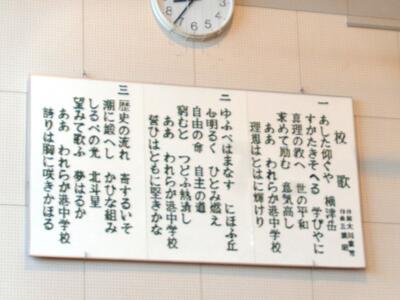 校歌
一 あした仰ぐや 横津岳
すがたきそへる 学びやに
真理の教へ 世の平和
求めて励む 意気高し
ああ われらが港中学校
理想はとはに輝けり
二 ゆふべはまなす にほふ丘
七明るく ひとみ燃え
自由の命 自主の道
窮むと つどふ熱汚し
ああ われらが港中学校
誉ひはともに堅きかな
三 歴史の流れ 寄するいそ
潮に鍛へし かひな組み
しるべの光 北斗星
望みて歌ふ 夢はるか
ああ われらが港中学校
誇りは胸に咲きかほる